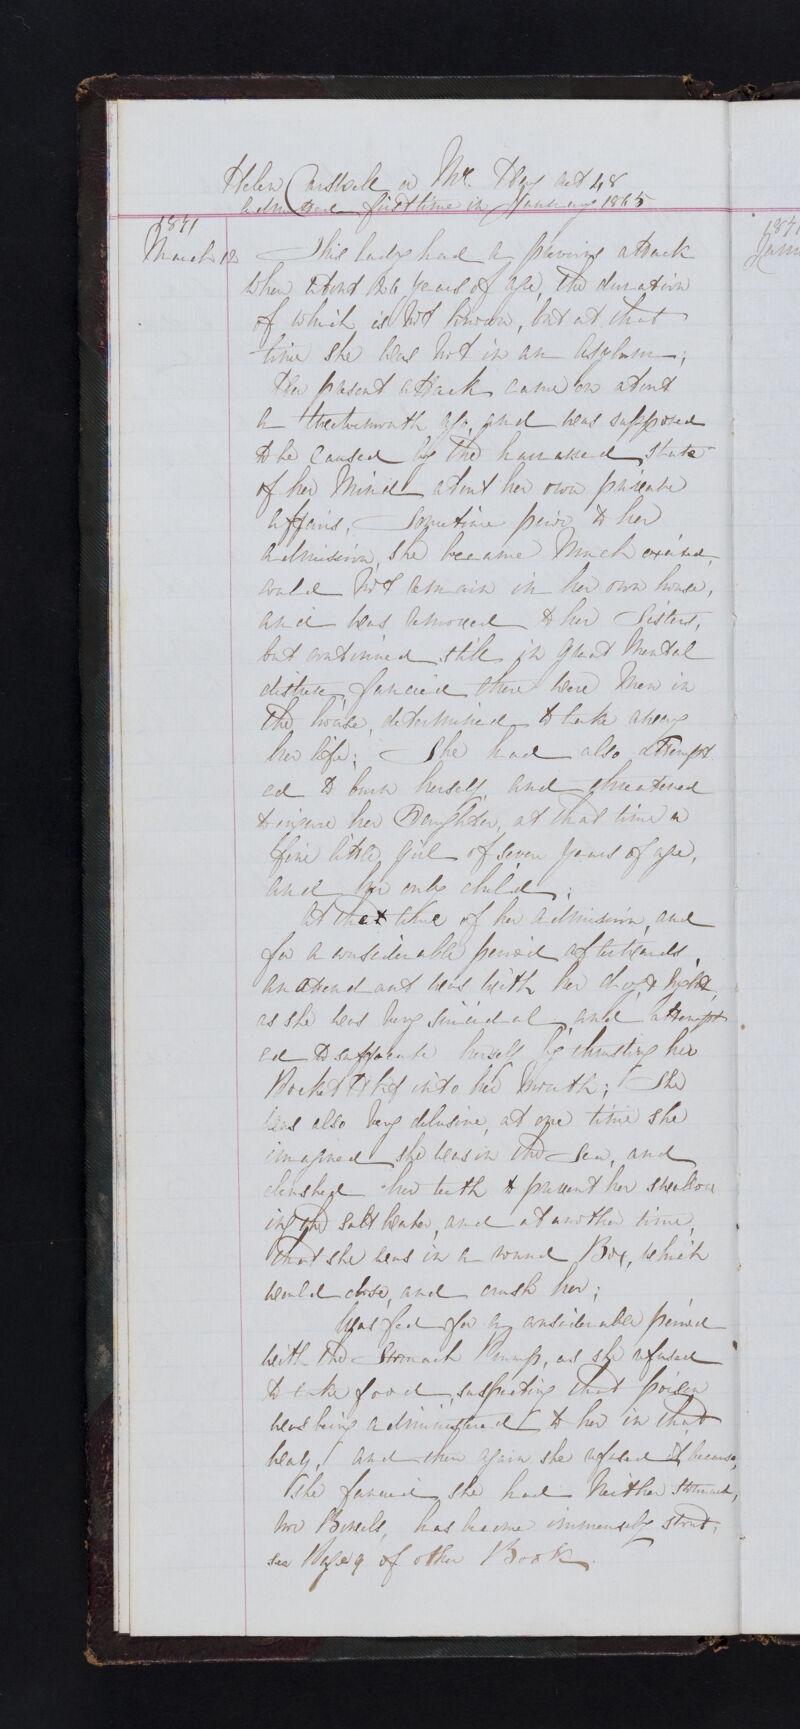 Helen Carstell or Mrs. Hay aet 48
admitted first time in January 1865
1871
March 12 This lady had a previous attack
when about 26 years of age, the duration
of which is not known, but at that
time she was not in an Asylum;
Her present attack came on about
a twelvemonth ago, and was supposed
to be caused by the harrassed state
of her mind about her own private
affairs. Sometime prior to her
admission, she became much excited,
would not remain in her own house,
and was removed to her Sisters,
but continued still in great mental
distress, fancied there were men in
the house, determined to take away
her life; She had also attempt
ed to burn herself, and threatened
to injure her Daughter, at that time a
fine little girl of seven years of age,
and her only child;
At the time of her admission, and
for a considerable period afterwards,
an attendant was with her day & night,
as she was very suicidal, and attempt
ed to suffocate herself by thrusting her
Pocket Hkf into her mouth; She
was also very delusive, at one time she
imagined she was in the Sea, and
clenched her teeth to prevent her swallow
ing the salt water, and at another time,
that she was in a round Box, which
would close, and crush her;
Was fed for a considerable period
with the Stomach Pump, as she refused
to take food, suspecting that poison
was being administered to her in that
way, and then again she refused it because,
she fancied she had neither stomach,
nor Bowels, has become immensely stout,
see Page 9 of other Book.
1871